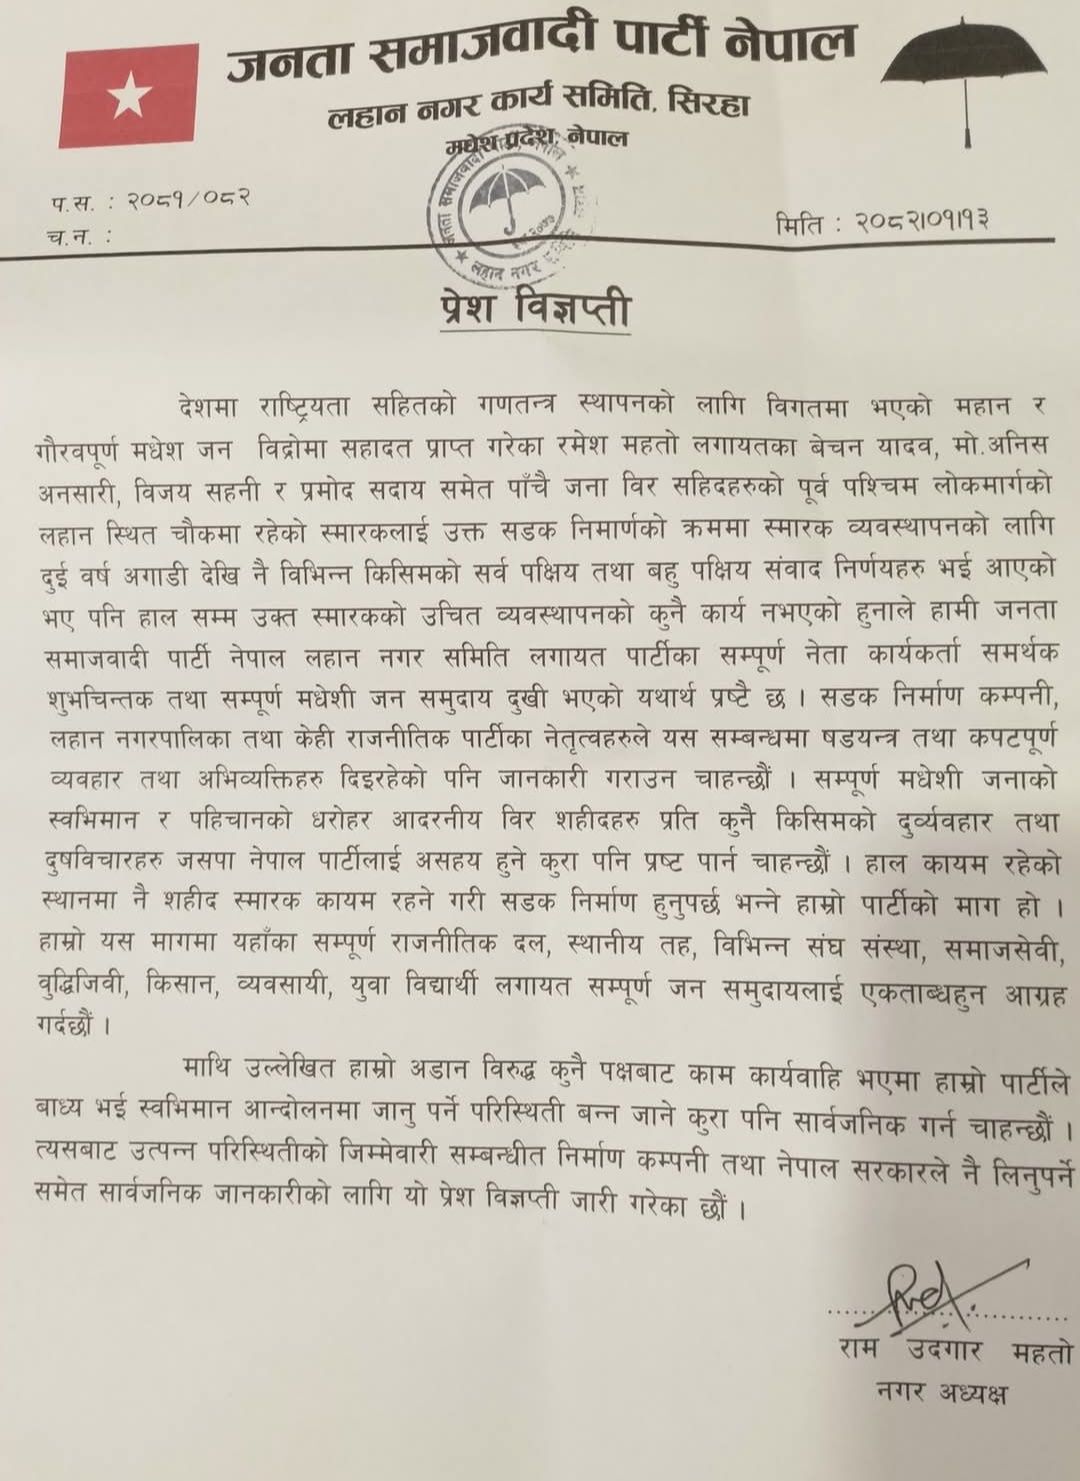 जनता समाजवादी पार्टी नेपाल
लहान नगर कार्य समिति, सिरहा
मधेश प्रदेश, नेपाल
प.स. : २०८१/०८२
च.न. :
मिति : २०८२।०१।१३
प्रेश विज्ञप्ती
देशमा राष्ट्रियता सहितको गणतन्त्र स्थापनको लागि विगतमा भएको महान र
गौरवपूर्ण मधेश जन विद्रोमा सहादत प्राप्त गरेका रमेश महतो लगायतका बेचन यादव, मो.अनिस
अनसारी, विजय सहनी र प्रमोद सदाय समेत पाँचै जना विर सहिदहरुको पूर्व पश्चिम लोकमार्गको
लहान स्थित चौकमा रहेको स्मारकलाई उक्त सडक निमार्णको क्रममा स्मारक व्यवस्थापनको लागि
दुई वर्ष अगाडी देखि नै विभिन्न किसिमको सर्व पक्षिय तथा बहु पक्षिय संवाद निर्णयहरु भई आएको
भए पनि हाल सम्म उक्त स्मारकको उचित व्यवस्थापनको कुनै कार्य नभएको हुनाले हामी जनता
समाजवादी पार्टी नेपाल लहान नगर समिति लगायत पार्टीका सम्पूर्ण नेता कार्यकर्ता समर्थक
शुभचिन्तक तथा सम्पूर्ण मधेशी जन समुदाय दुखी भएको यथार्थ प्रष्टै छ । सडक निर्माण कम्पनी,
लहान नगरपालिका तथा केही राजनीतिक पार्टीका नेतृत्वहरुले यस सम्बन्धमा षडयन्त्र तथा कपटपूर्ण
व्यवहार तथा अभिव्यक्तिहरु दिइरहेको पनि जानकारी गराउन चाहन्छौं । सम्पूर्ण मधेशी जनाको
स्वभिमान र पहिचानको धरोहर आदरनीय विर शहीदहरु प्रति कुनै किसिमको दुर्व्यवहार तथा
दुषविचारहरु जसपा नेपाल पार्टीलाई असहय हुने कुरा पनि प्रष्ट पार्न चाहन्छौं । हाल कायम रहेको
स्थानमा नै शहीद स्मारक कायम रहने गरी सडक निर्माण हुनुपर्छ भन्ने हाम्रो पार्टीको माग हो ।
हाम्रो यस मागमा यहाँका सम्पूर्ण राजनीतिक दल, स्थानीय तह, विभिन्न संघ संस्था, समाजसेवी,
वुद्धिजिवी, किसान, व्यवसायी, युवा विद्यार्थी लगायत सम्पूर्ण जन समुदायलाई एकताब्धहुन आग्रह
गर्दछौं ।
माथि उल्लेखित हाम्रो अडान विरुद्ध कुनै पक्षबाट काम कार्यवाहि भएमा हाम्रो पार्टीले
बाध्य भई स्वभिमान आन्दोलनमा जानु पर्ने परिस्थिती बन्न जाने कुरा पनि सार्वजनिक गर्न चाहन्छौं ।
त्यसबाट उत्पन्न परिस्थितीको जिम्मेवारी सम्बन्धीत निर्माण कम्पनी तथा नेपाल सरकारले नै लिनुपर्ने
समेत सार्वजनिक जानकारीको लागि यो प्रेश विज्ञप्ती जारी गरेका छौं ।
राम उदगार महतो
नगर अध्यक्ष